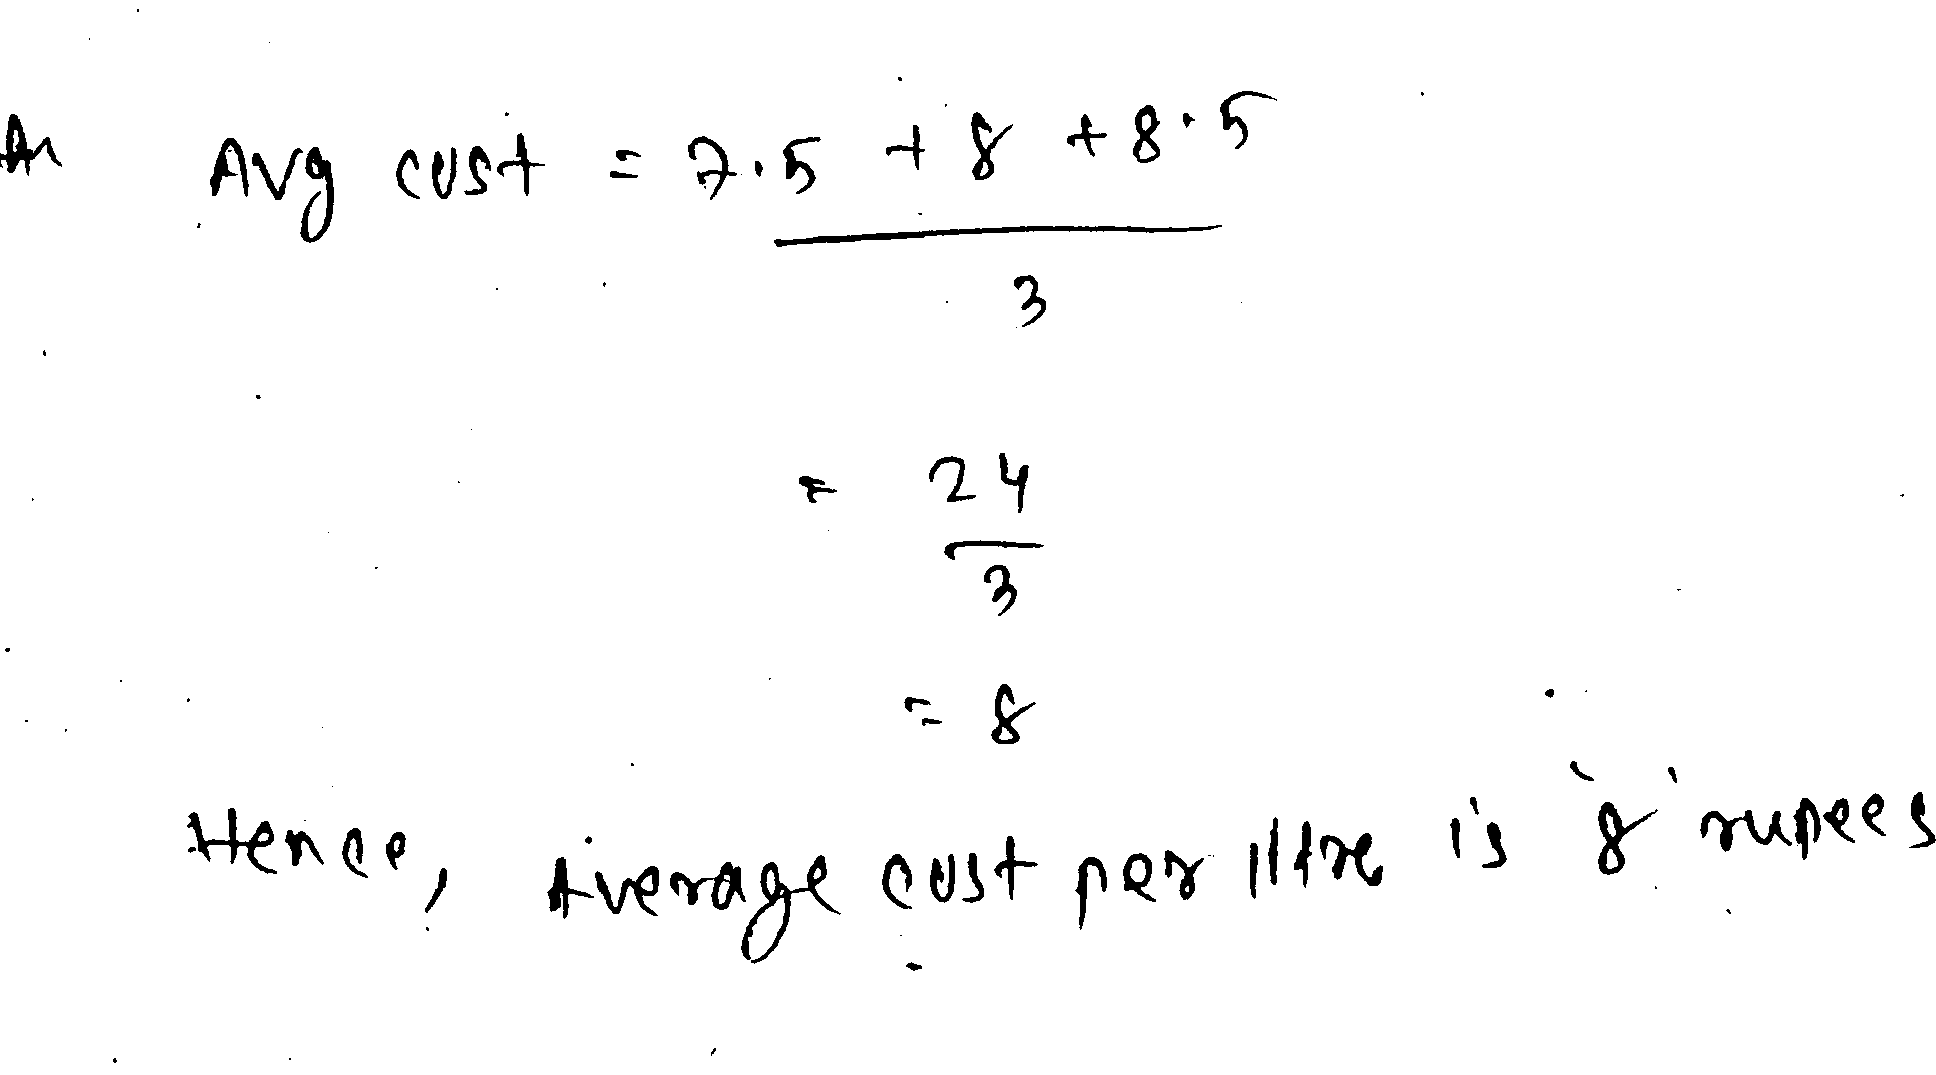 An Avg cost = 7.5 + 8 + 8.5
3
= 24
3
= 8
Hence, Average cost per litre is '8' rupees